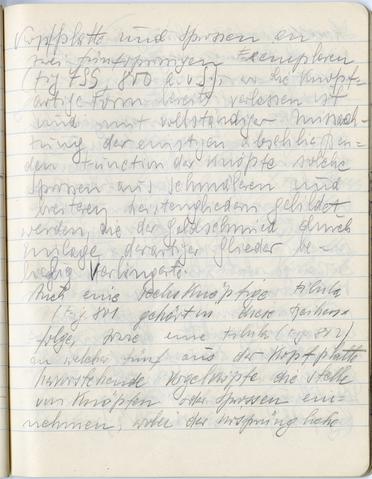 Kopfplatte und Sprossen an
zwei fünfsprossigen Exemplaren
(Fig 799, 800 a. v. S.), wo die Knopf-
artige Form bereits verlassen ist
und mit vollständiger Missach-
tung der einstigen abschließen-
den Function der Knöpfe solche
Sprossen aus schmäleren und
breiteren Leistengliedern gebildet
werden, die der Goldschmied durch
Zulage derartiger Glieder be-
liebig verlängerte.
Auch eine sechsknöpfige Fibula
(Fig 801 gehört in diese Reihen-
folge, sowie eine Fibula (Fig 802)
an welcher fünf aus der Kopfplatte
hervorstehende Vogelköpfe die Stelle
von Knöpfen oder Sprossen ein-
nehmen, wobei der ursprüngliche